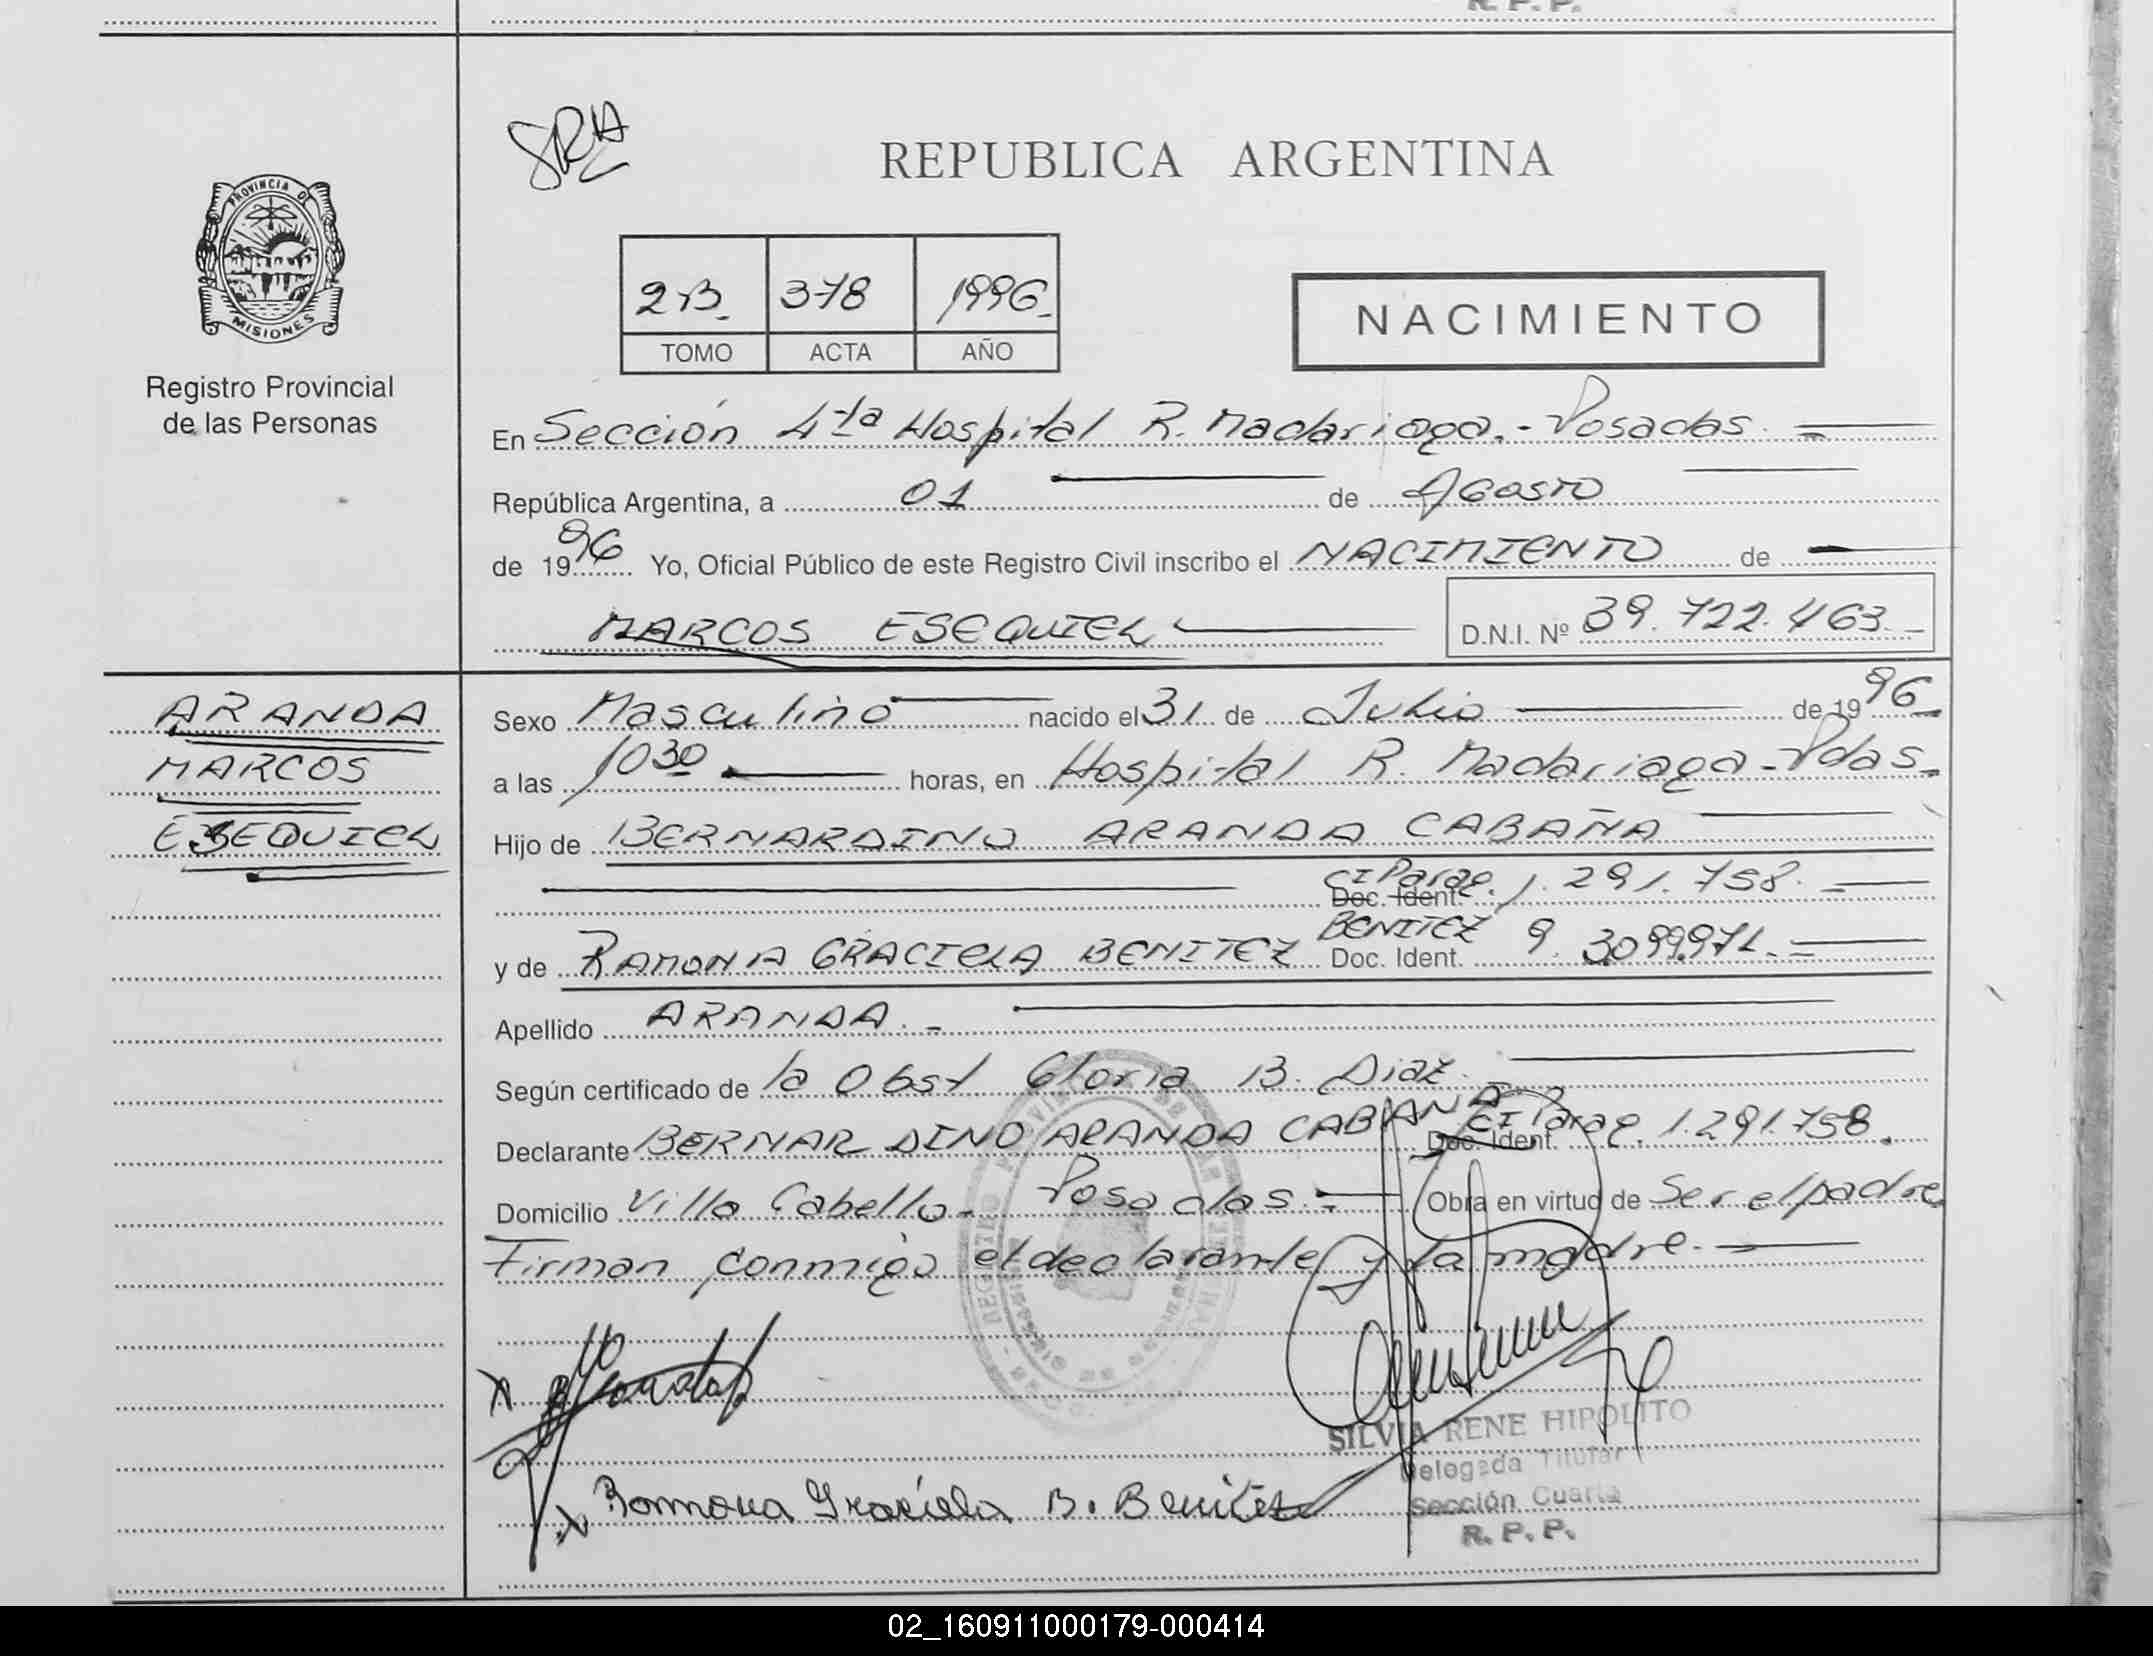 R. P. P.
SRH
REPUBLICA ARGENTINA
PROVINCIA DE
MISIONES
Registro Provincial
de las Personas
2 B. 378 1996.
TOMO ACTA AÑO
NACIMIENTO
En Sección 4ta Hospital R. Madariaga.- Posadas. -
República Argentina, a 01 de Agosto
de 1996 Yo, Oficial Público de este Registro Civil inscribo el NACIMIENTO de
MARCOS ESEQUIEL
D.N.I. Nº 39.722.463.-
ARANDA
MARCOS
ESEQUIEL
Sexo Masculino nacido el 31 de Julio de 1996.
a las 10 30 horas, en Hospital R. Madariaga - Pdas.
Hijo de BERNARDINO ARANDA CABAÑA
CI Parag. Doc. Ident. 1.291.758.-
BENITEZ
y de RAMONA GRACIELA BENITEZ Doc. Ident. 9.3099971.-
Apellido ARANDA.-
Según certificado de la Obst Gloria B. Diaz.
Declarante BERNARDINO ARANDA CABAÑA CI Parag. Doc. Ident. 1.291.758.
Domicilio Villa Cabello - Posadas.- Obra en virtud de Ser el padre
Firman conmigo el declarante y la madre.-
SILVIA RENE HIPOLITO
Delegada Titular
Sección Cuarta
R. P. P.
X
X Ramona Graciela B. Benitez
02_160911000179-000414